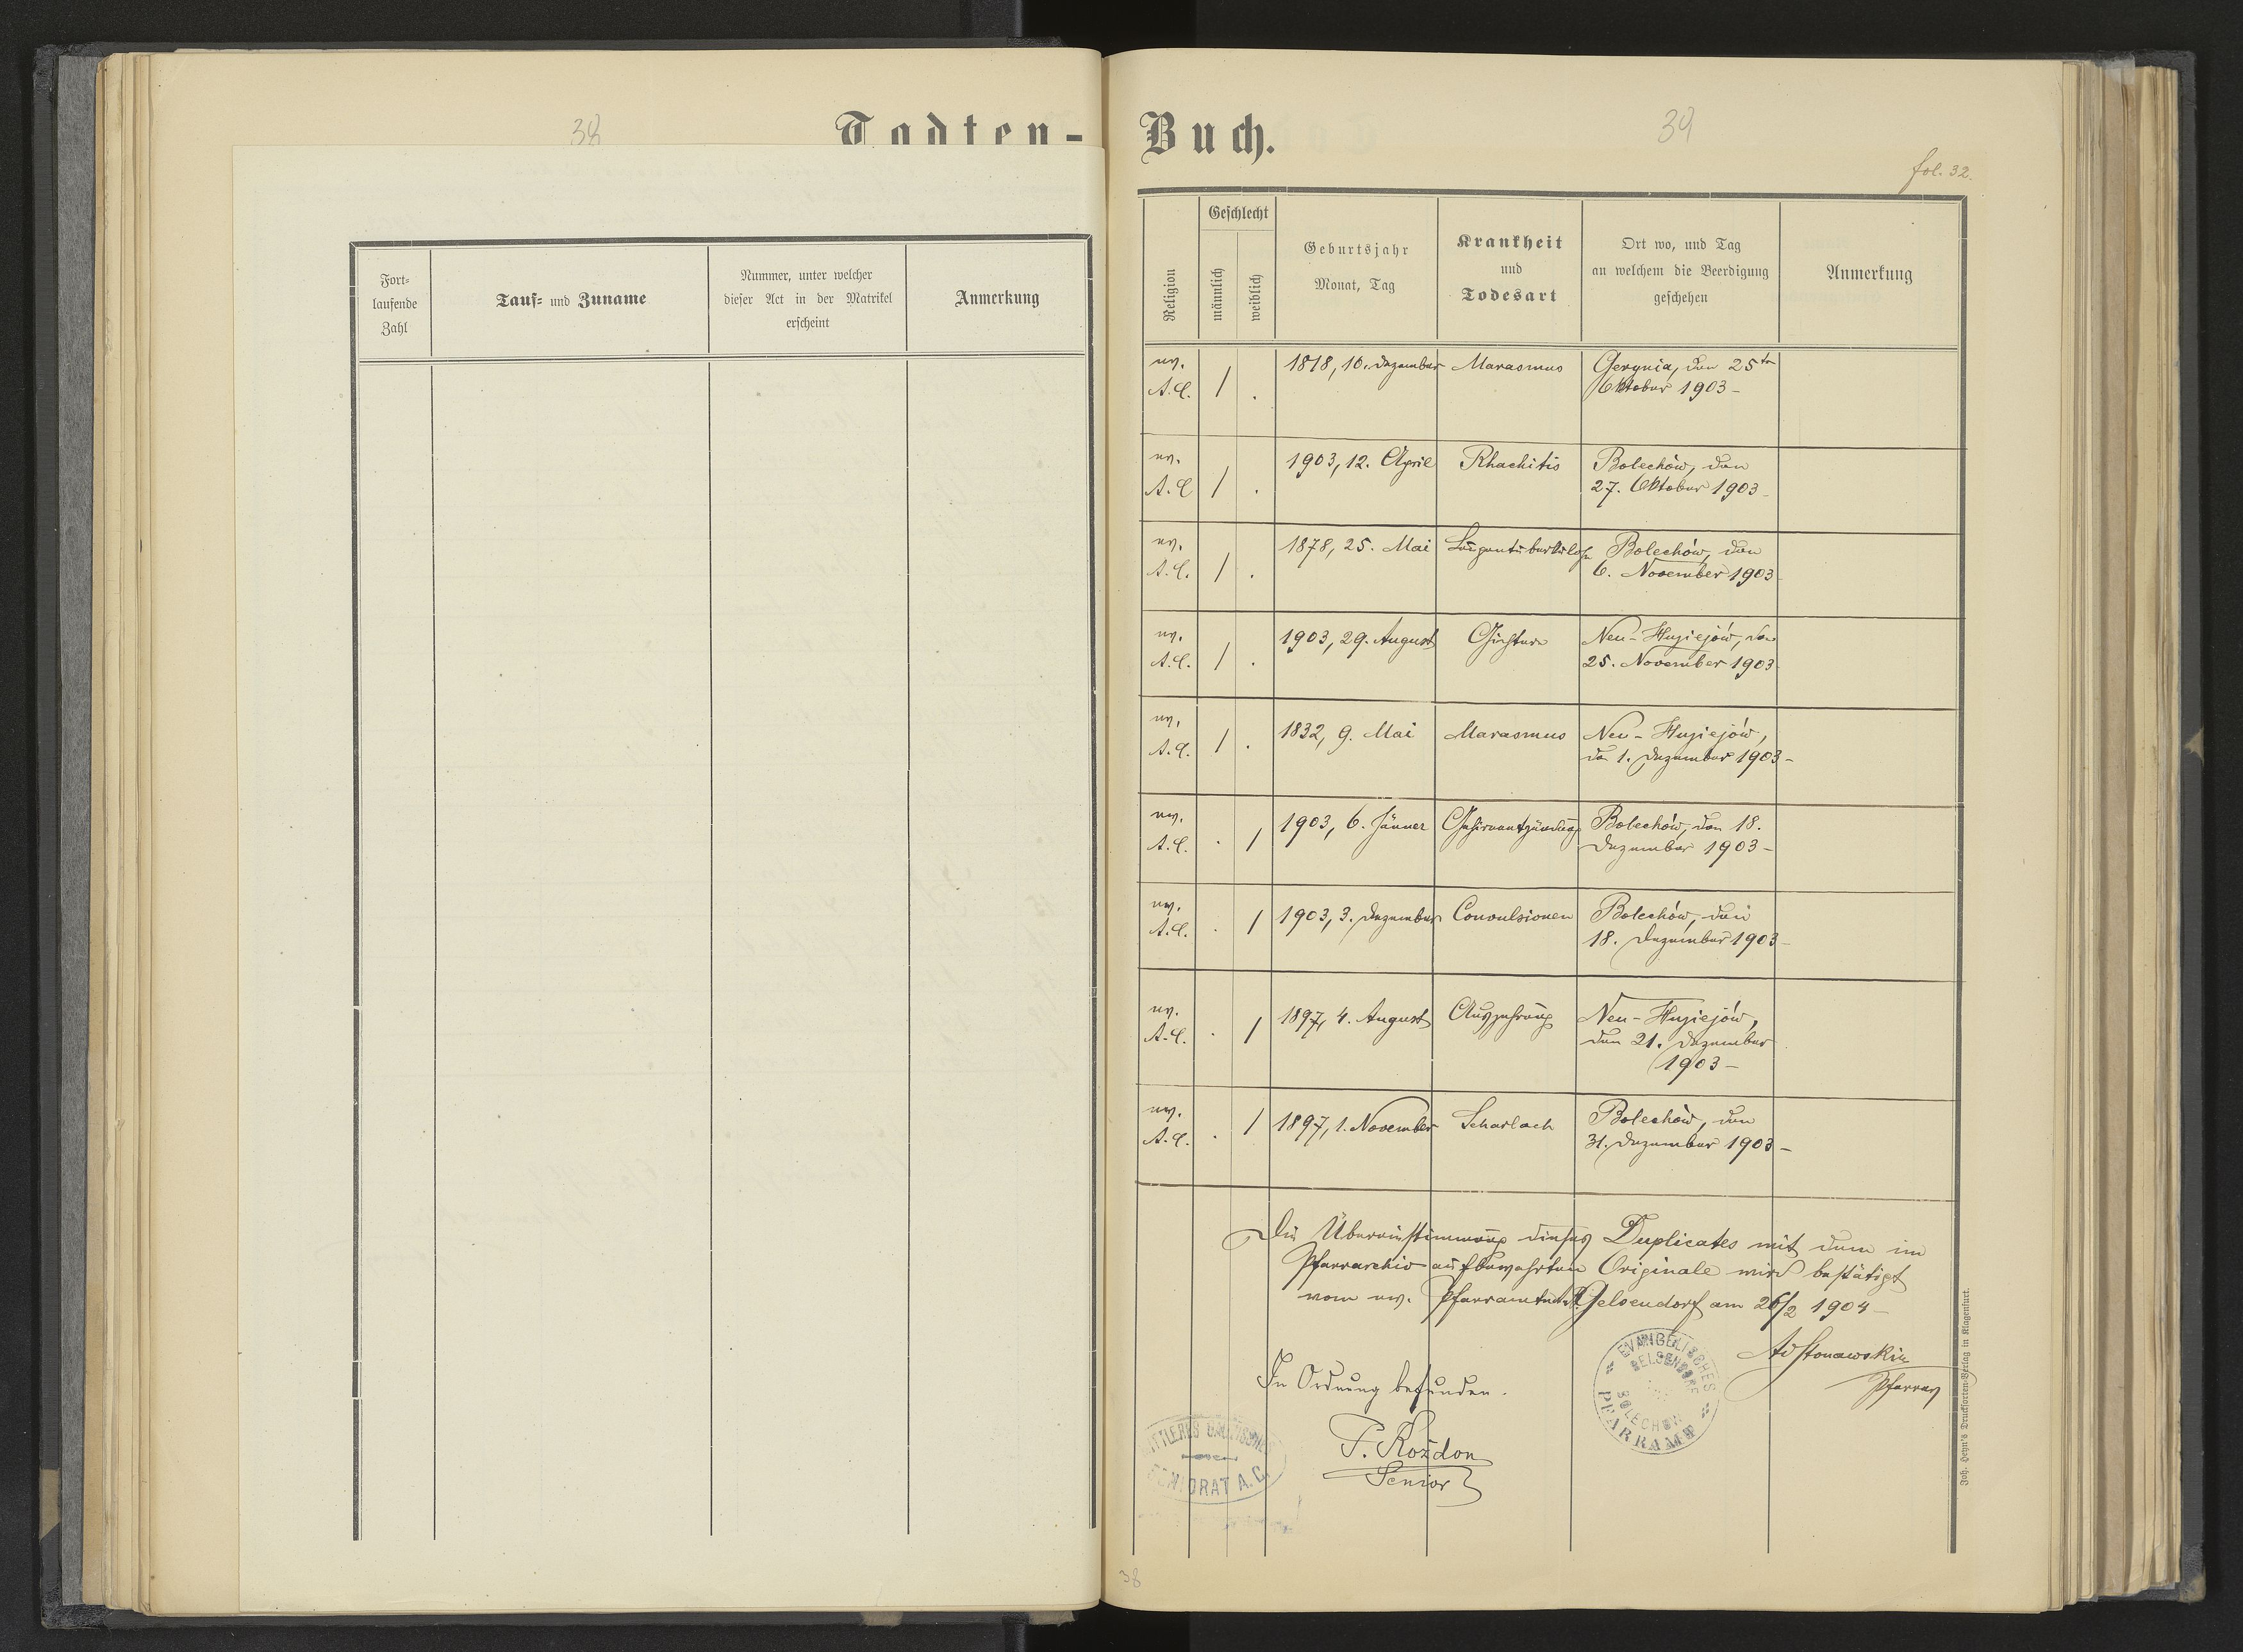 38
Todten-
Fort-
laufende
Zahl
Tauf- und Zuname
Nummer, unter welcher
dieser Act in der Matrikel
erscheint
Anmerkung
Buch.
39
fol. 32.
Religion
Geschlecht
männlich
weiblich
Geburtsjahr
Monat, Tag
Krankheit
und
Todesart
Ort wo, und Tag
an welchem die Beerdigung
geschehen
Anmerkung
ev.
A.C. / . 1818, 10. Dezember Marasmus Gerynia, den 25ten
Oktober 1903 –
ev.
A.C / . 1903, 12. April Rhachitis Bolechów, den
27. Oktober 1903 –
ev.
A.C. / . 1878, 25. Mai Lungentuberkulose Bolechów, den
6. November 1903
ev.
A.C. / . 1903, 29. August Neu-Huziejów, den
25. November 1903
ev.
A.C. / . 1832, 9. Mai Marasmus Neu-Huziejów,
den 1. Dezember 1903 –
ev.
A.C. . / 1903, 6. Jänner Gehirnentzündung Bolechów, den 18.
Dezember 1903 –
ev.
A.C. . / 1903, 3. Dezember Convulsionen Bolechów, den
18. Dezember 1903 –
ev.
A.C. . / 1897, 4. August Auszehrung Neu-Huziejów,
den 21. Dezember
1903 –
ev.
A.C. . / 1897, 1. November Scharlach Bolechów, den
31. Dezember 1903 –
Die Übereinstimmung dieses Duplicates mit dem im
Pfarrarchiv aufbewahrten Originale wird bestätigt
vom ev. Pfarramte Gelsendorf am 26/2 1904 –
In Ordnung befunden.
P. Roždon
Senior
EVANGELISCHES
GELSENDORF
BOLECHÓW
PFARRAMT
Pfarrer
MITTLERES GALIZISCHES
SENIORAT A.C.
Joh. Heyn's Drucksorten-Verlag in Klagenfurt.
38